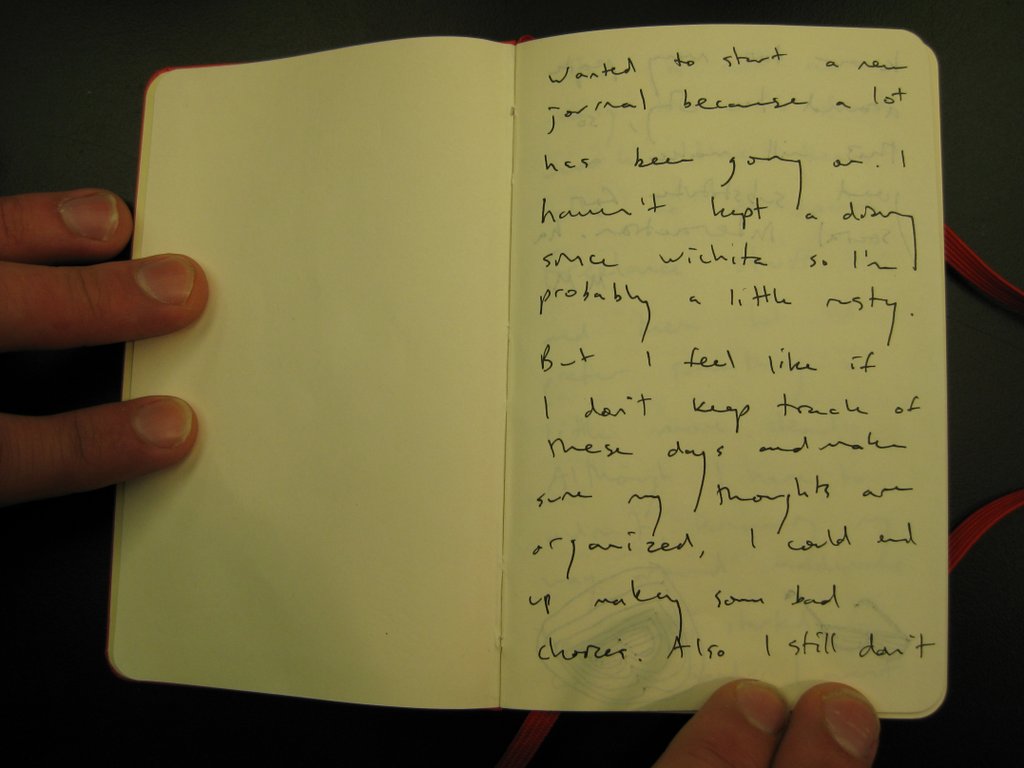 Wanted to start a new
jornal because a lot
has been going on. I
haven't kept a diary
since wichita so I'm
probably a little rusty.
But I feel like if
I don't keep track of
these days and make
sure my thoughts are
organized, I could end
up making some bad
choices. Also I still don't